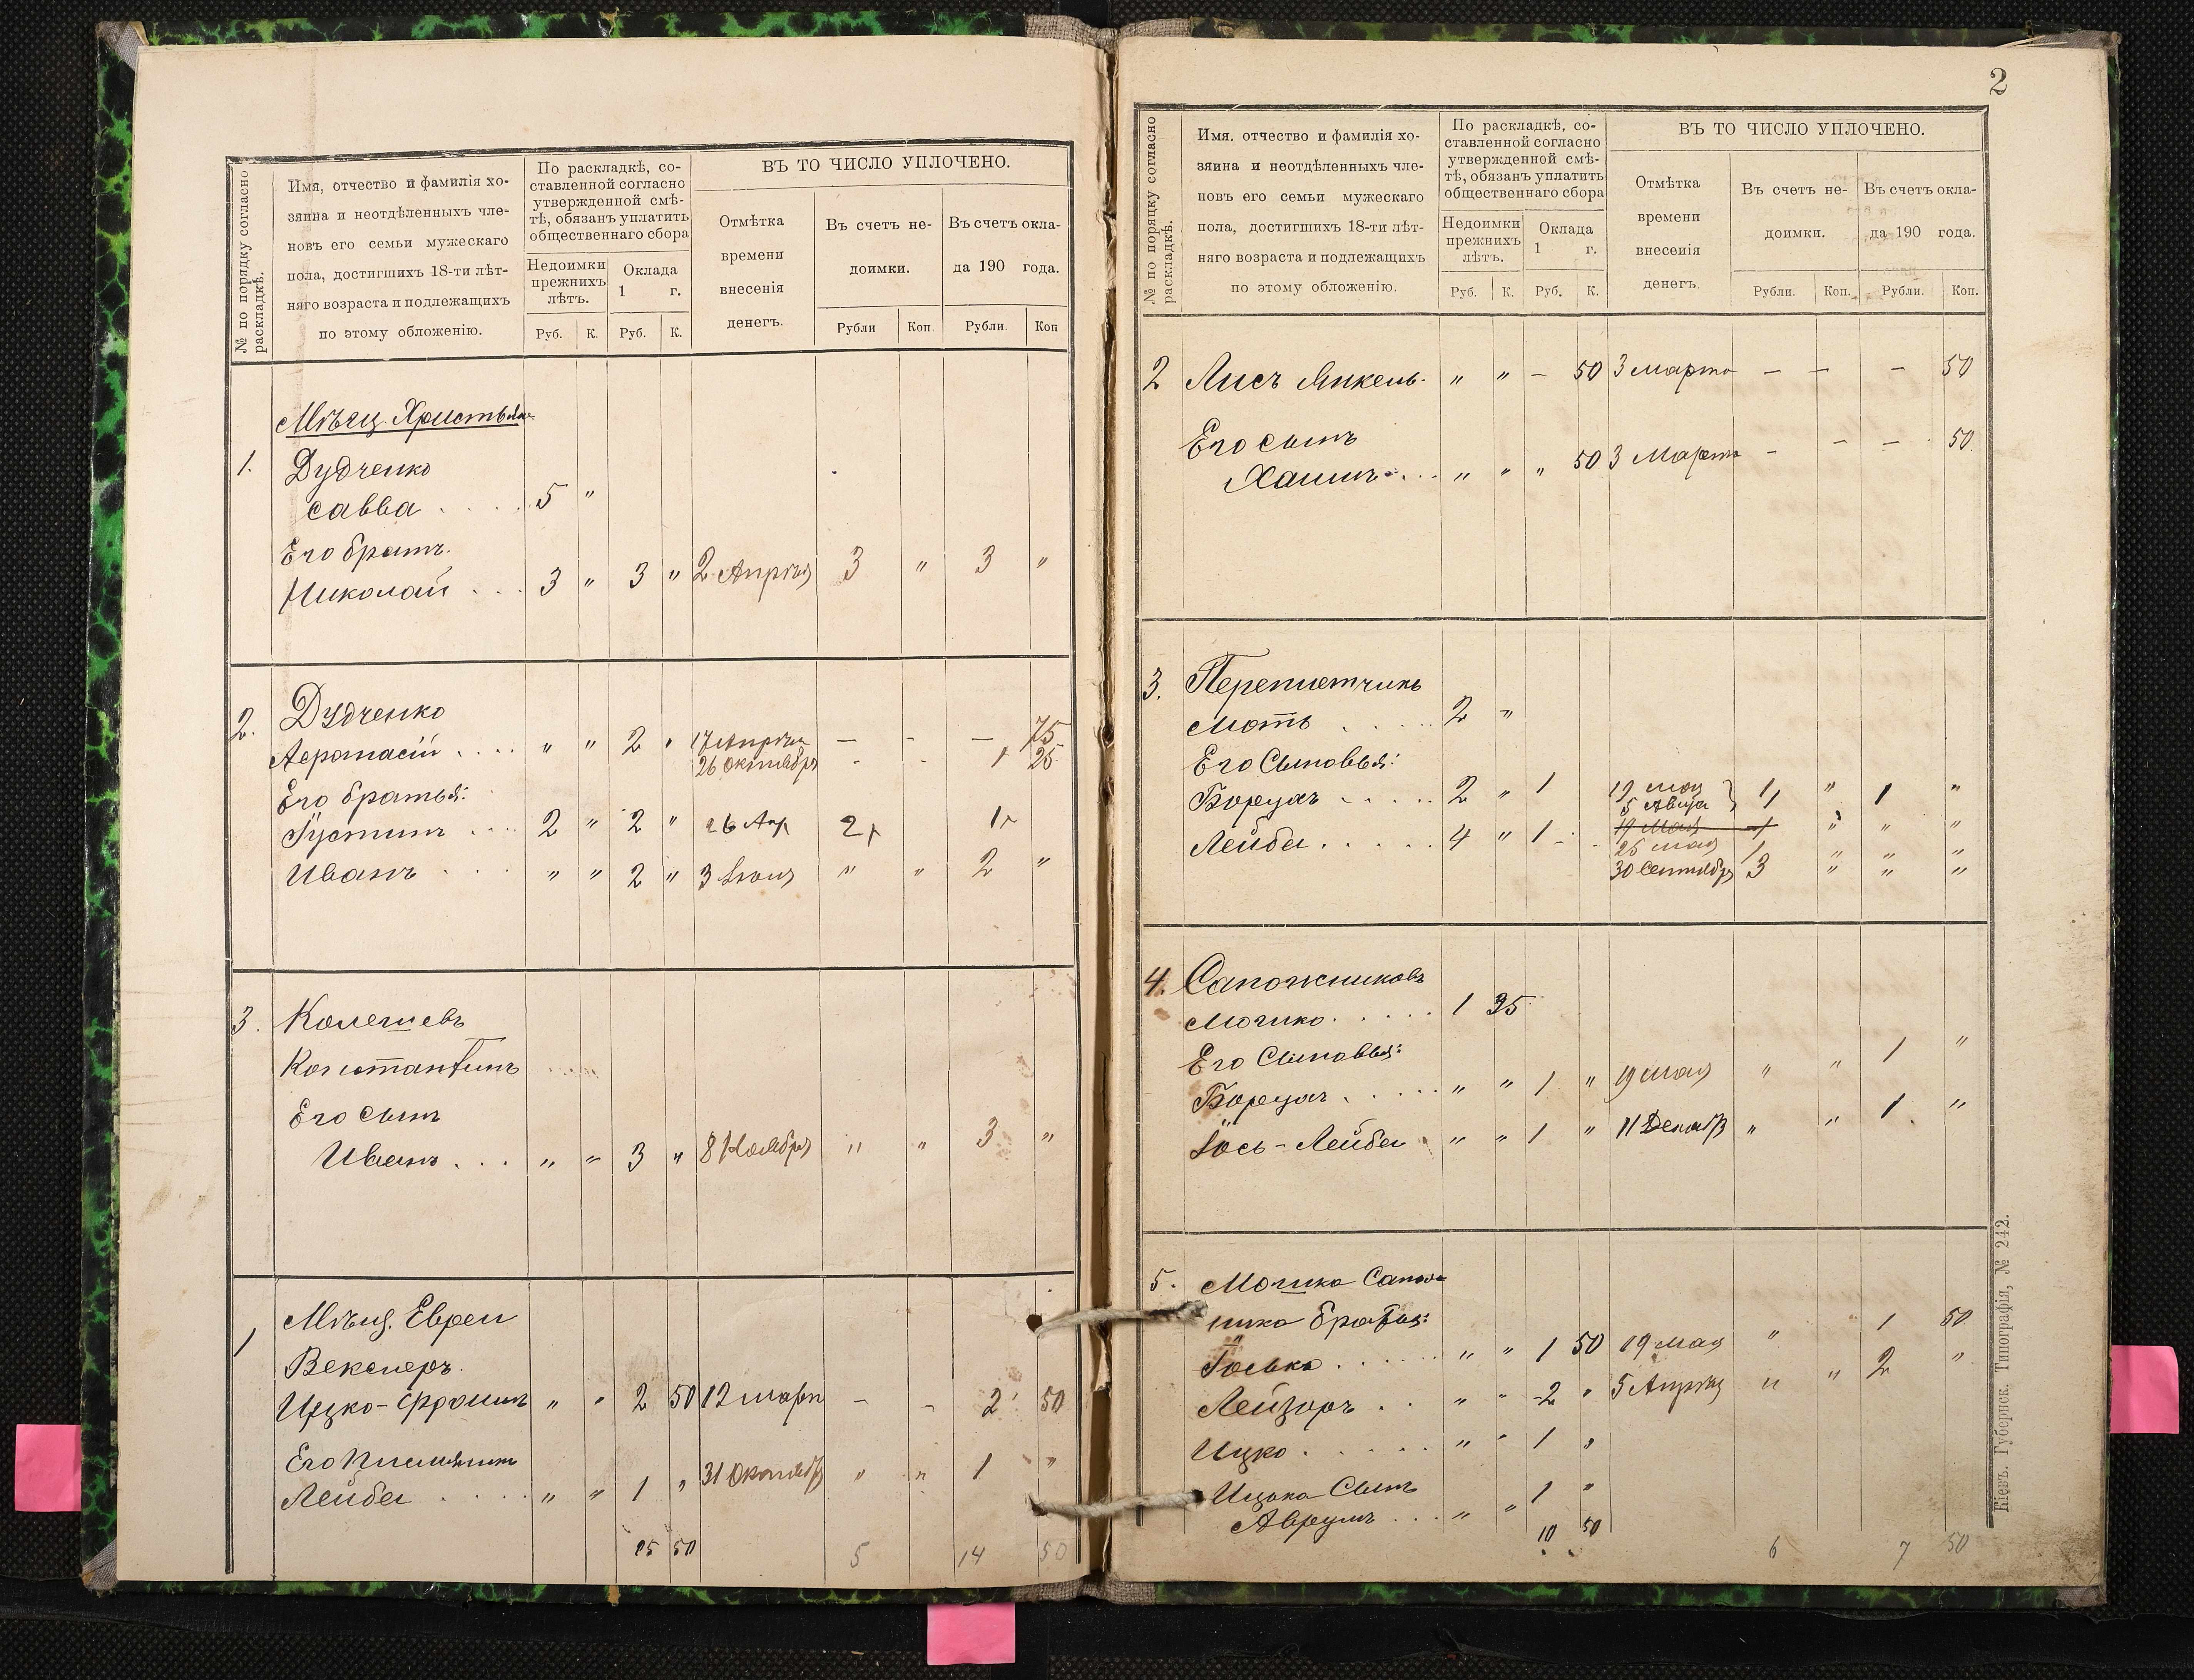 № по порядку согласно
раскладкѣ.
Имя, отчество и фамилія хо-
зяина и неотдѣленныхъ чле-
новъ его семьи мужескаго
пола, достигшихъ 18-ти лѣт-
няго возраста и подлежащихъ
по этому обложенію.
По раскладкѣ, со-
ставленной согласно
утвержденной смѣ-
тѣ, обязанъ уплатить
общественнаго сбора
Недоимки
прежнихъ
лѣтъ.
Оклада
1 г.
ВЪ ТО ЧИСЛО УПЛОЧЕНО.
Отмѣтка
времени
внесенія
денегъ.
Въ счетъ не-
доимки.
Въ счетъ окла-
да 190 года.
Руб. К. Руб. К. Рубли Коп. Рубли. Коп
Мѣщ. Христьяне
1. Дудченко
Савва . . . . 5 "
Его братъ.
Николай . . . 3 " 3 " 2 Апрѣля 3 " 3 "
2. Дудченко
Афонасій . . . . " " 2 " 17 Апрѣля — - — 75
26 Октября - - 1 25
Его братья:
Густинъ . . . . 2 " 2 " 26 Апр 2 р 1 р
Иванъ . . . " " 2 " 3 Іюня " " 2 "
3.
Константинъ
Его сынъ
Иванъ . . . " " 3 " 8 Ноября " " 3 "
Мѣщ. Евреи
1 Векслеръ.
Ицко-Фроимъ " " 2 50 12 март — - 2 50
Его племянникъ
Лейба . . . . " " 1 " 31 Октября " " 1 "
15 50 5 14 50
2
№ по порядку согласно
раскладкѣ.
Имя, отчество и фамилія хо-
зяина и неотдѣленныхъ чле-
новъ его семьи мужескаго
пола, достигшихъ 18-ти лѣт-
няго возраста и подлежащихъ
по этому обложенію.
По раскладкѣ, со-
ставленной согласно
утвержденной смѣ-
тѣ, обязанъ уплатить
общественнаго сбора
Недоимки
прежнихъ
лѣтъ.
Оклада
1 г.
ВЪ ТО ЧИСЛО УПЛОЧЕНО.
Отмѣтка
времени
внесенія
денегъ.
Въ счетъ не-
доимки.
Въ счетъ окла-
да 190 года.
Руб. К. Руб. К. Рубли. Коп. Рубли. Коп.
2 Лисъ Янкель. " " — 50 3 марта — — — 50
Его сынъ
Хаимъ . . . " " " 50 3 Марта - — — 50
3. Переплетчикъ
Моть . . . . . 2 "
Его Сыновья:
Борухъ . . . . . 2 " 1 19 мая 1 " 1 "
5 Авгус
Лейба . . . . . 4 " 1 - 19 Мая 1 " " "
25 мая 1 " " "
30 Сентября 3 " " "
4. Сапожниковъ
Мошко . . . . . 1 35
Его Сыновья:
Борухъ . . . . " " 1 " 19 мая " " 1 "
Іось-Лейба " " 1 " 11 Декаб " " 1 "
5. Мошка Сапож
ника братья:
. . . . . . " " 1 50 19 мая " 1 50
Лейзоръ . . " " 2 " 5 Апрѣля " " 2 "
Ицко . . . . . " " 1 "
Ицька Сынъ
Аврумъ . . . " " 1 "
10 50 6 7 50
Кіевъ. Губернск. Типографія, № 242.